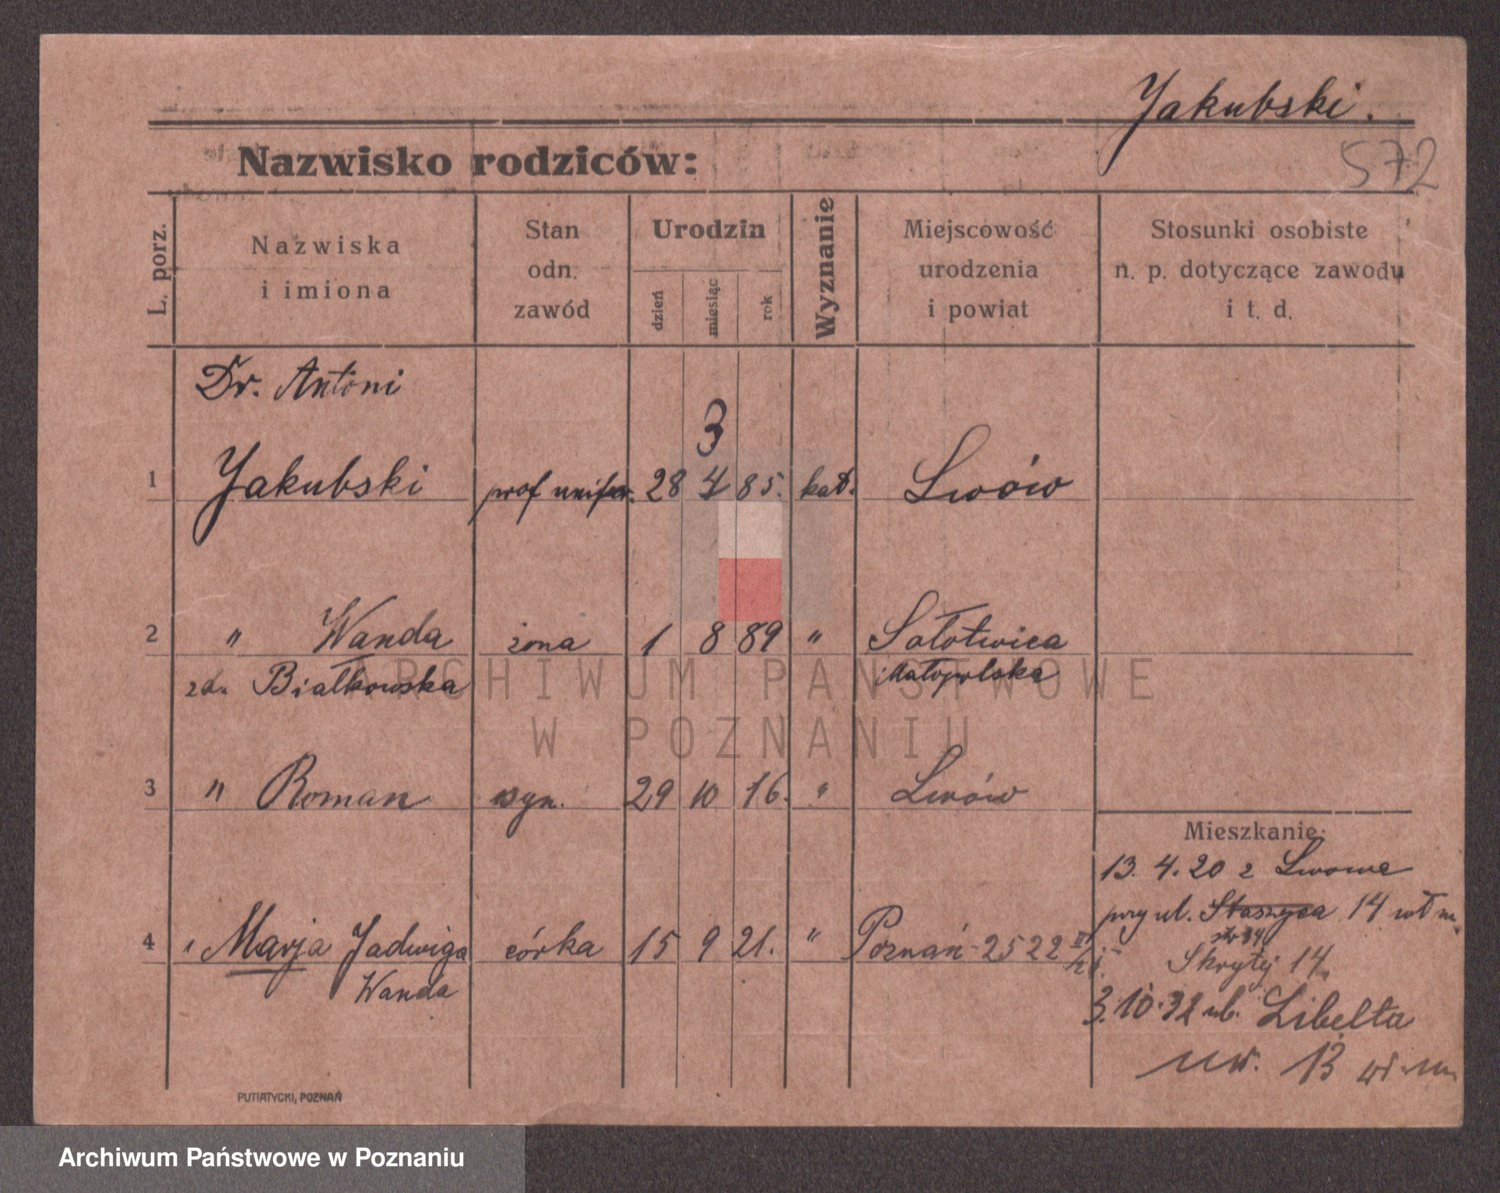 Jakubski.
572
Nazwisko rodziców:
L. porz.
Nazwiska
i imiona
Stan
odn.
zawód
Urodzin
dzień
miesiąc
rok
Wyznanie
Miejscowość
urodzenia
i powiat
Stosunki osobiste
n. p. dotyczące zawodu
i t. d.
Dr. Antoni
3
1 Jakubski prof. uniwer. 28 4 85. kat. Lwów
2 " Wanda żona 1 8 89 " Sołotwica
zd. Białkowska Małopolska
3 " Roman syn. 29 10 16. " Lwów
Mieszkanie:
13. 4. 20 z Lwowa
przy ul. Staszyca 14 wł m.
4 " Marja Jadwiga córka 15 9 21. " Poznań 2522
Wanda
Skrytej 14
3.10.32 ul. Libelta
nr. 13 wł. m.
PUTIATYCKI, POZNAŃ
ARCHIWUM PAŃSTWOWE
W POZNANIU
Archiwum Państwowe w Poznaniu